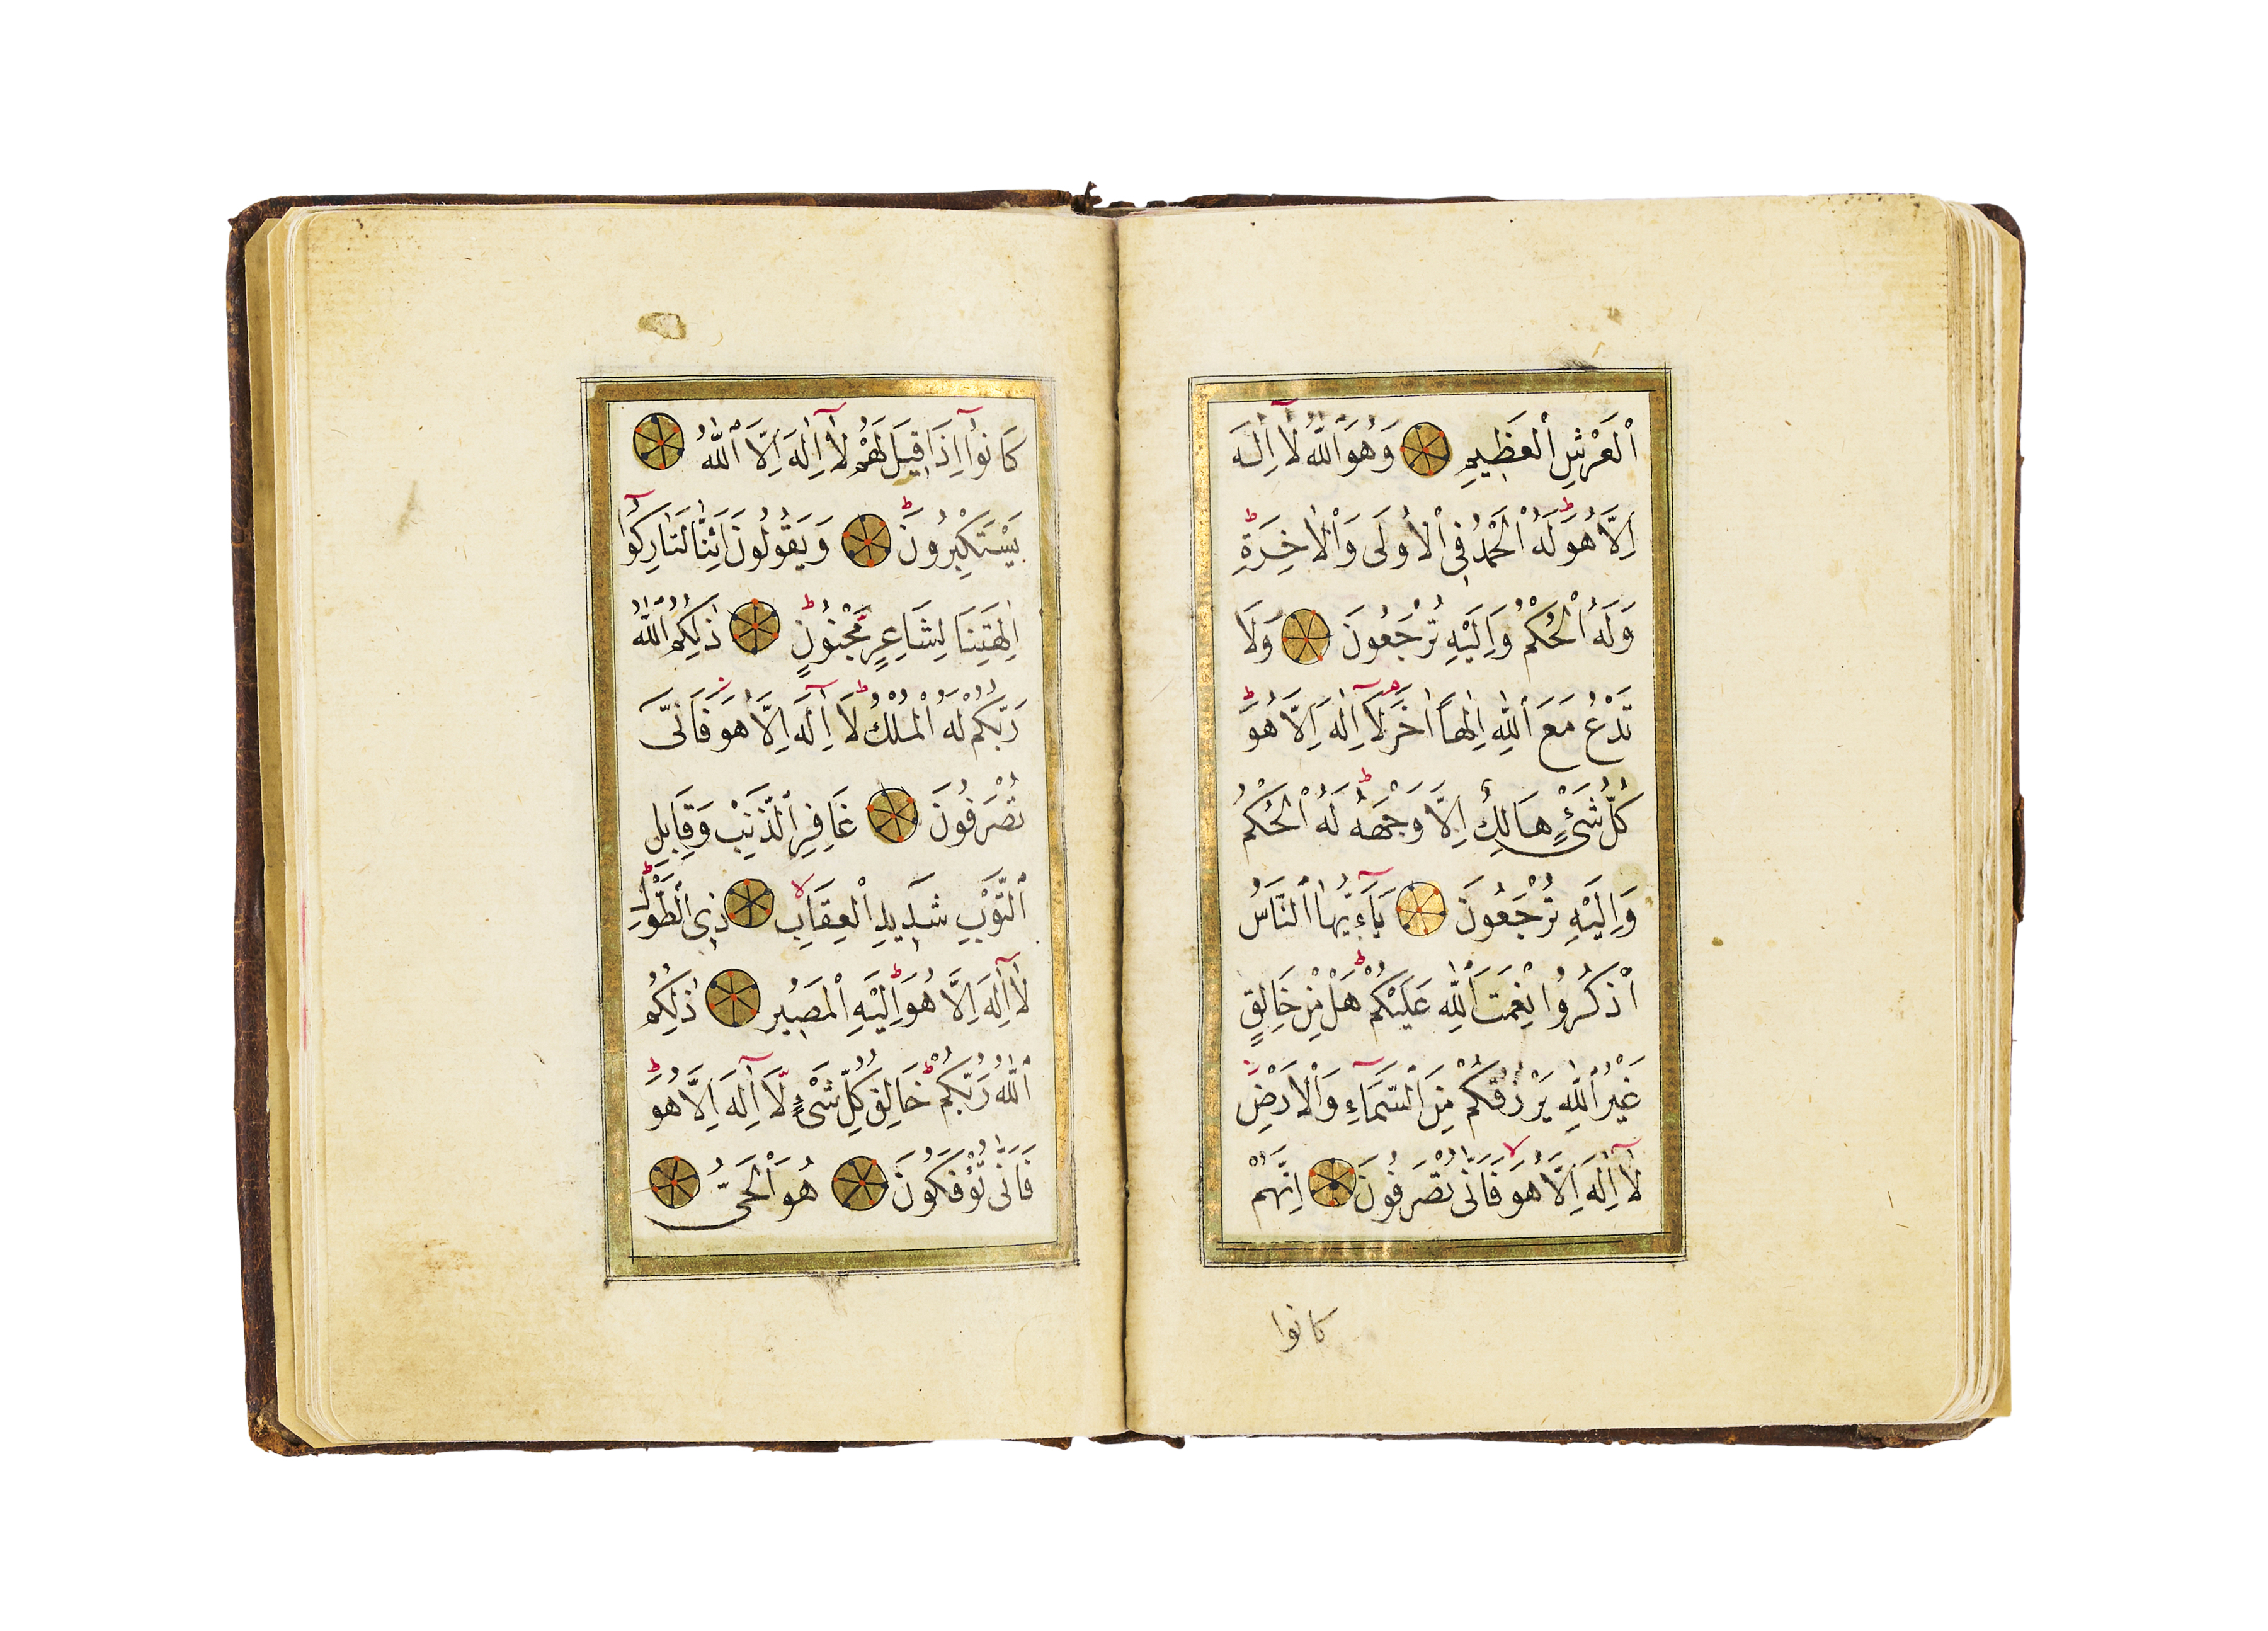 ٱلْعَرْشِ ٱلْعَظِيمِ وَهُوَ ٱللّٰهُ لَٓا اِلٰهَ
اِلَّا هُوَ لَهُ ٱلْحَمْدُ فِى ٱلْاُولَى وَٱلْاٰخِرَةِ
وَلَهُ ٱلْحُكْمُ وَاِلَيْهِ تُرْجَعُونَ وَلَا
تَدْعُ مَعَ ٱللّٰهِ اِلٰهاً اٰخَرَ لَٓا اِلٰهَ اِلَّا هُوَ
كُلُّ شَىْءٍ هَالِكٌ اِلَّا وَجْهَهُ لَهُ ٱلْحُكْمُ
وَاِلَيْهِ تُرْجَعُونَ يَٓاءَيُّهَا ٱلنَّاسُ
ٱذْكُرُوا نِعْمَتَ ٱللّٰهِ عَلَيْكُمْ هَلْ مِنْ خَالِقٍ
غَيْرُ ٱللّٰهِ يَرْزُقُكُمْ مِنَ ٱلسَّمَٓاءِ وَٱلْاَرْضِ
لَٓا اِلٰهَ اِلَّا هُوَ فَاَنّٰى تُصْرَفُونَ اِنَّهُمْ
كانوا
كَانُوٓا اِذَا قِيلَ لَهُمْ لَٓا اِلٰهَ اِلَّا ٱللّٰهُ
يَسْتَكْبِرُونَ وَيَقُولُونَ اَئِنَّا لَتَارِكُوٓا
اٰلِهَتِنَا لِشَاعِرٍ مَجْنُونٍ ذٰلِكُمُ ٱللّٰهُ
رَبُّكُمْ لَهُ ٱلْمُلْكُ لَٓا اِلٰهَ اِلَّا هُوَ فَاَنّٰى
تُصْرَفُونَ غَافِرِ ٱلذَّنْبِ وَقَابِلِ
ٱلتَّوْبِ شَدِيدِ ٱلْعِقَابِ ذِى ٱلطَّوْلِ
لَٓا اِلٰهَ اِلَّا هُوَ اِلَيْهِ ٱلْمَصِيرُ ذٰلِكُمُ
ٱللّٰهُ رَبُّكُمْ خَالِقُ كُلِّ شَىْءٍ لَٓا اِلٰهَ اِلَّا هُوَ
فَاَنّٰى تُؤْفَكُونَ هُوَ ٱلْحَىُّ